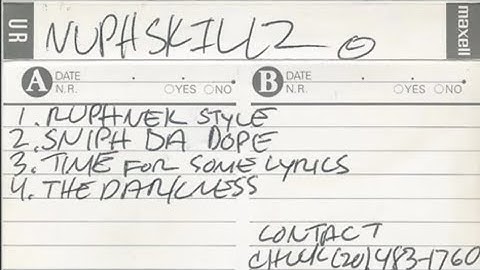 UR
NUPHSKILLZ
maxell
A DATE
N.R. YES NO
B DATE
N.R. YES NO
1. RUPHNEK STYLE
2. SNIPH DA DOPE
3. TIME FOR SOME LYRICS
4. THE DARKNESS
CONTACT
CHUCK (20) 483-1760